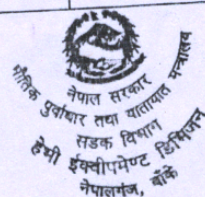 नेपाल सरकार
भौतिक पूर्वाधार तथा यातायात मन्त्रालय
सडक विभाग
हेभी ईक्वीपमेण्ट डिभिजन
नेपालगंज, बाँके